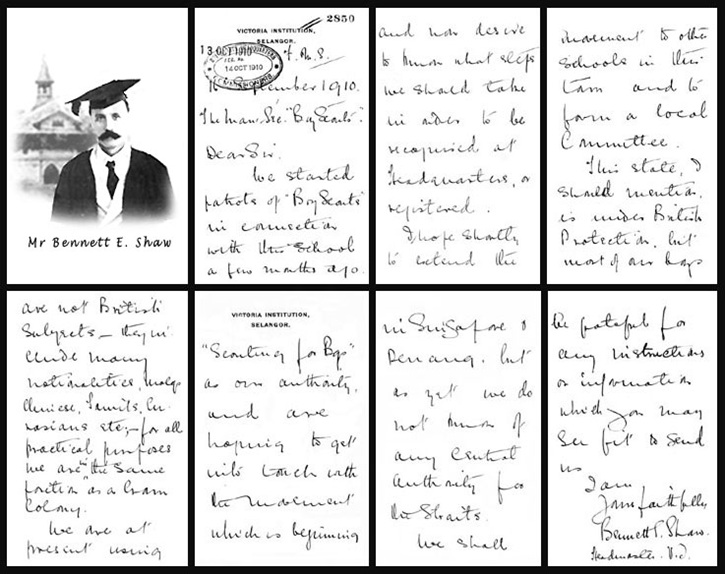 Mr Bennett E. Shaw
2850
VICTORIA INSTITUTION,
SELANGOR.
F. M. S.
13 OCT 1910
14 OCT 1910
September 1910.
The Man. Sec. "Boy Scouts".
Dear Sir,
We started
patrols of "Boy Scouts"
in connection
with this School
a few months ago.
and now desire
to know what steps
we should take
in order to be
recognised at
Headquarters, or
registered.
I hope shortly
to extend the
movement to other
Schools in this
town and to
form a local
Committee.
This state, I
should mention,
is under British
Protection, but
most of our boys
are not British
Subjects – they in-
clude many
nationalities, Malays
Chinese, Tamils, Eu-
rasians etc; – for all
practical purposes
we are "the same
footing" as a Crown
Colony.
We are at
present using
VICTORIA INSTITUTION,
SELANGOR.
"Scouting for Boys"
as our authority,
and are
hoping to get
into touch with
the movement
which is beginning
in Singapore &
Penang, but
as yet we do
not know of
any Central
Authority for
the Straits.
We shall
be grateful for
any instructions
or information
which you may
see fit to send
us
I am
Yours faithfully
Bennett E. Shaw.
Headmaster. V.I.